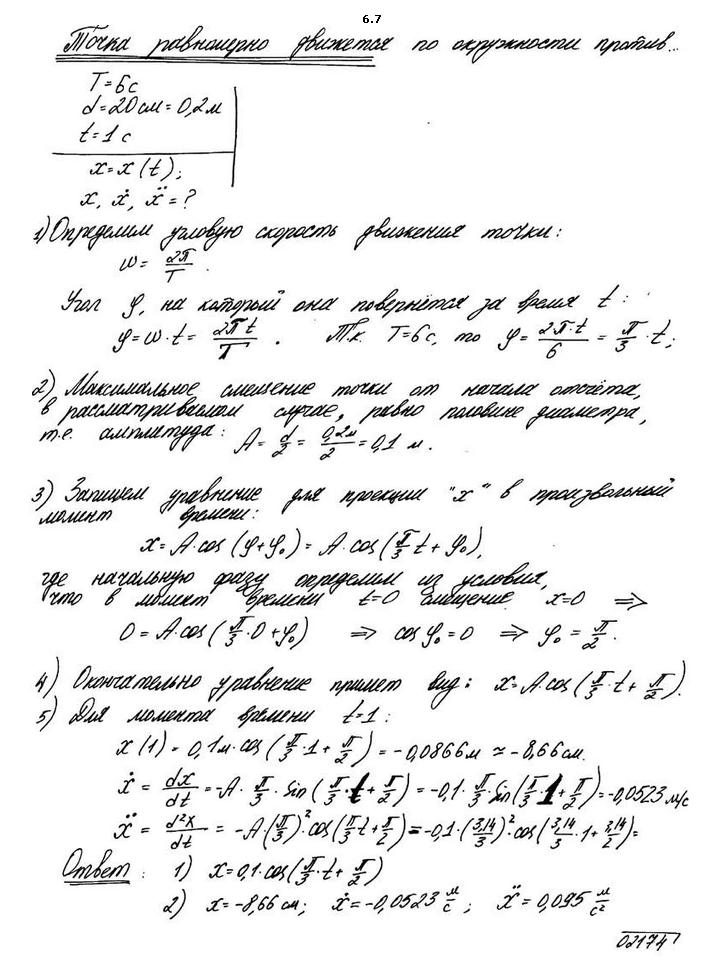 6.7
Точка равномерно движется по окружности против...
T=6с
d=20см=0,2м
t=1 с
x=x(t);
x, ẋ, ẍ=?
1) Определим угловую скорость движения точки:
ω= 2π/T .
Угол φ, на который она повернётся за время t:
φ=ω·t= 2πt/T . Т.к. T=6с, то φ= 2π·t/6 = π/3 ·t;
2) Максимальное смещение точки от начала отсчёта,
в рассматриваемом случае, равно половине диаметра,
т.е. амплитуда: A= d/2 = 0,2м/2 =0,1 м.
3) Запишем уравнение для проекции "x" в произвольный
момент времени:
x=A·cos(φ+φ₀)=A·cos(π/3 t+φ₀),
где начальную фазу определим из условия,
что в момент времени t=0 смещение x=0 ⇒
0=A·cos(π/3·0+φ₀) ⇒ cosφ₀=0 ⇒ φ₀=π/2.
4) Окончательно уравнение примет вид: x=A·cos(π/3·t+π/2).
5) Для момента времени t=1:
x(1)=0,1м·cos(π/3·1+π/2)=-0,0866м≃-8,66см.
ẋ = dx/dt =-A·π/3·sin(π/3·t+π/2)=-0,1·π/3 sin(π/3·1+π/2)=-0,0523 м/с
ẍ = d²x/dt = -A·(π/3)²·cos(π/3 t+π/2)=-0,1·(3,14/3)²·cos(3,14/3·1+3,14/2)=
Ответ: 1) x=0,1·cos(π/3·t+π/2)
2) x=-8,66см; ẋ=-0,0523 м/с; ẍ=0,095 м/с²
02174